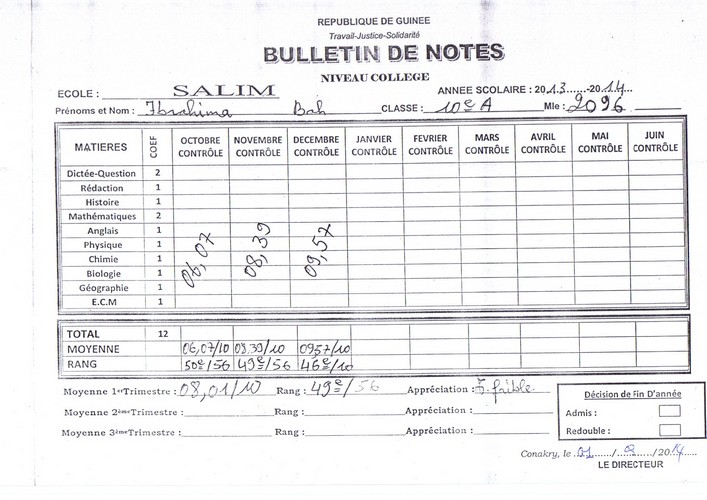 REPUBLIQUE DE GUINEE
Travail-Justice-Solidarité
BULLETIN DE NOTES
NIVEAU COLLEGE
ECOLE : SALIM ANNEE SCOLAIRE : 2013......-2014...
Prénoms et Nom : Ibrahima Bah CLASSE : 10e A Mle : 2096
MATIERES COEF OCTOBRE CONTRÔLE NOVEMBRE CONTRÔLE DECEMBRE CONTRÔLE JANVIER CONTRÔLE FEVRIER CONTRÔLE MARS CONTRÔLE AVRIL CONTRÔLE MAI CONTRÔLE JUIN CONTRÔLE
Dictée-Question 2
Rédaction 1
Histoire 1
Mathématiques 2
Anglais 1
Physique 1
Chimie 1
Biologie 1
Géographie 1
E.C.M 1
06,07 08,39 09,57
TOTAL 12
MOYENNE 06,07/10 08.39/10 0957/10
RANG 50e/56 49e/56 46e/10
Moyenne 1erTrimestre : 08,01/10 Rang : 49e/56 Appréciation : faible
Moyenne 2èmeTrimestre : Rang : Appréciation :
Moyenne 3èmeTrimestre : Rang : Appréciation :
Décision de Fin D'année
Admis :
Redouble :
Conakry, le 01/....../2014
LE DIRECTEUR